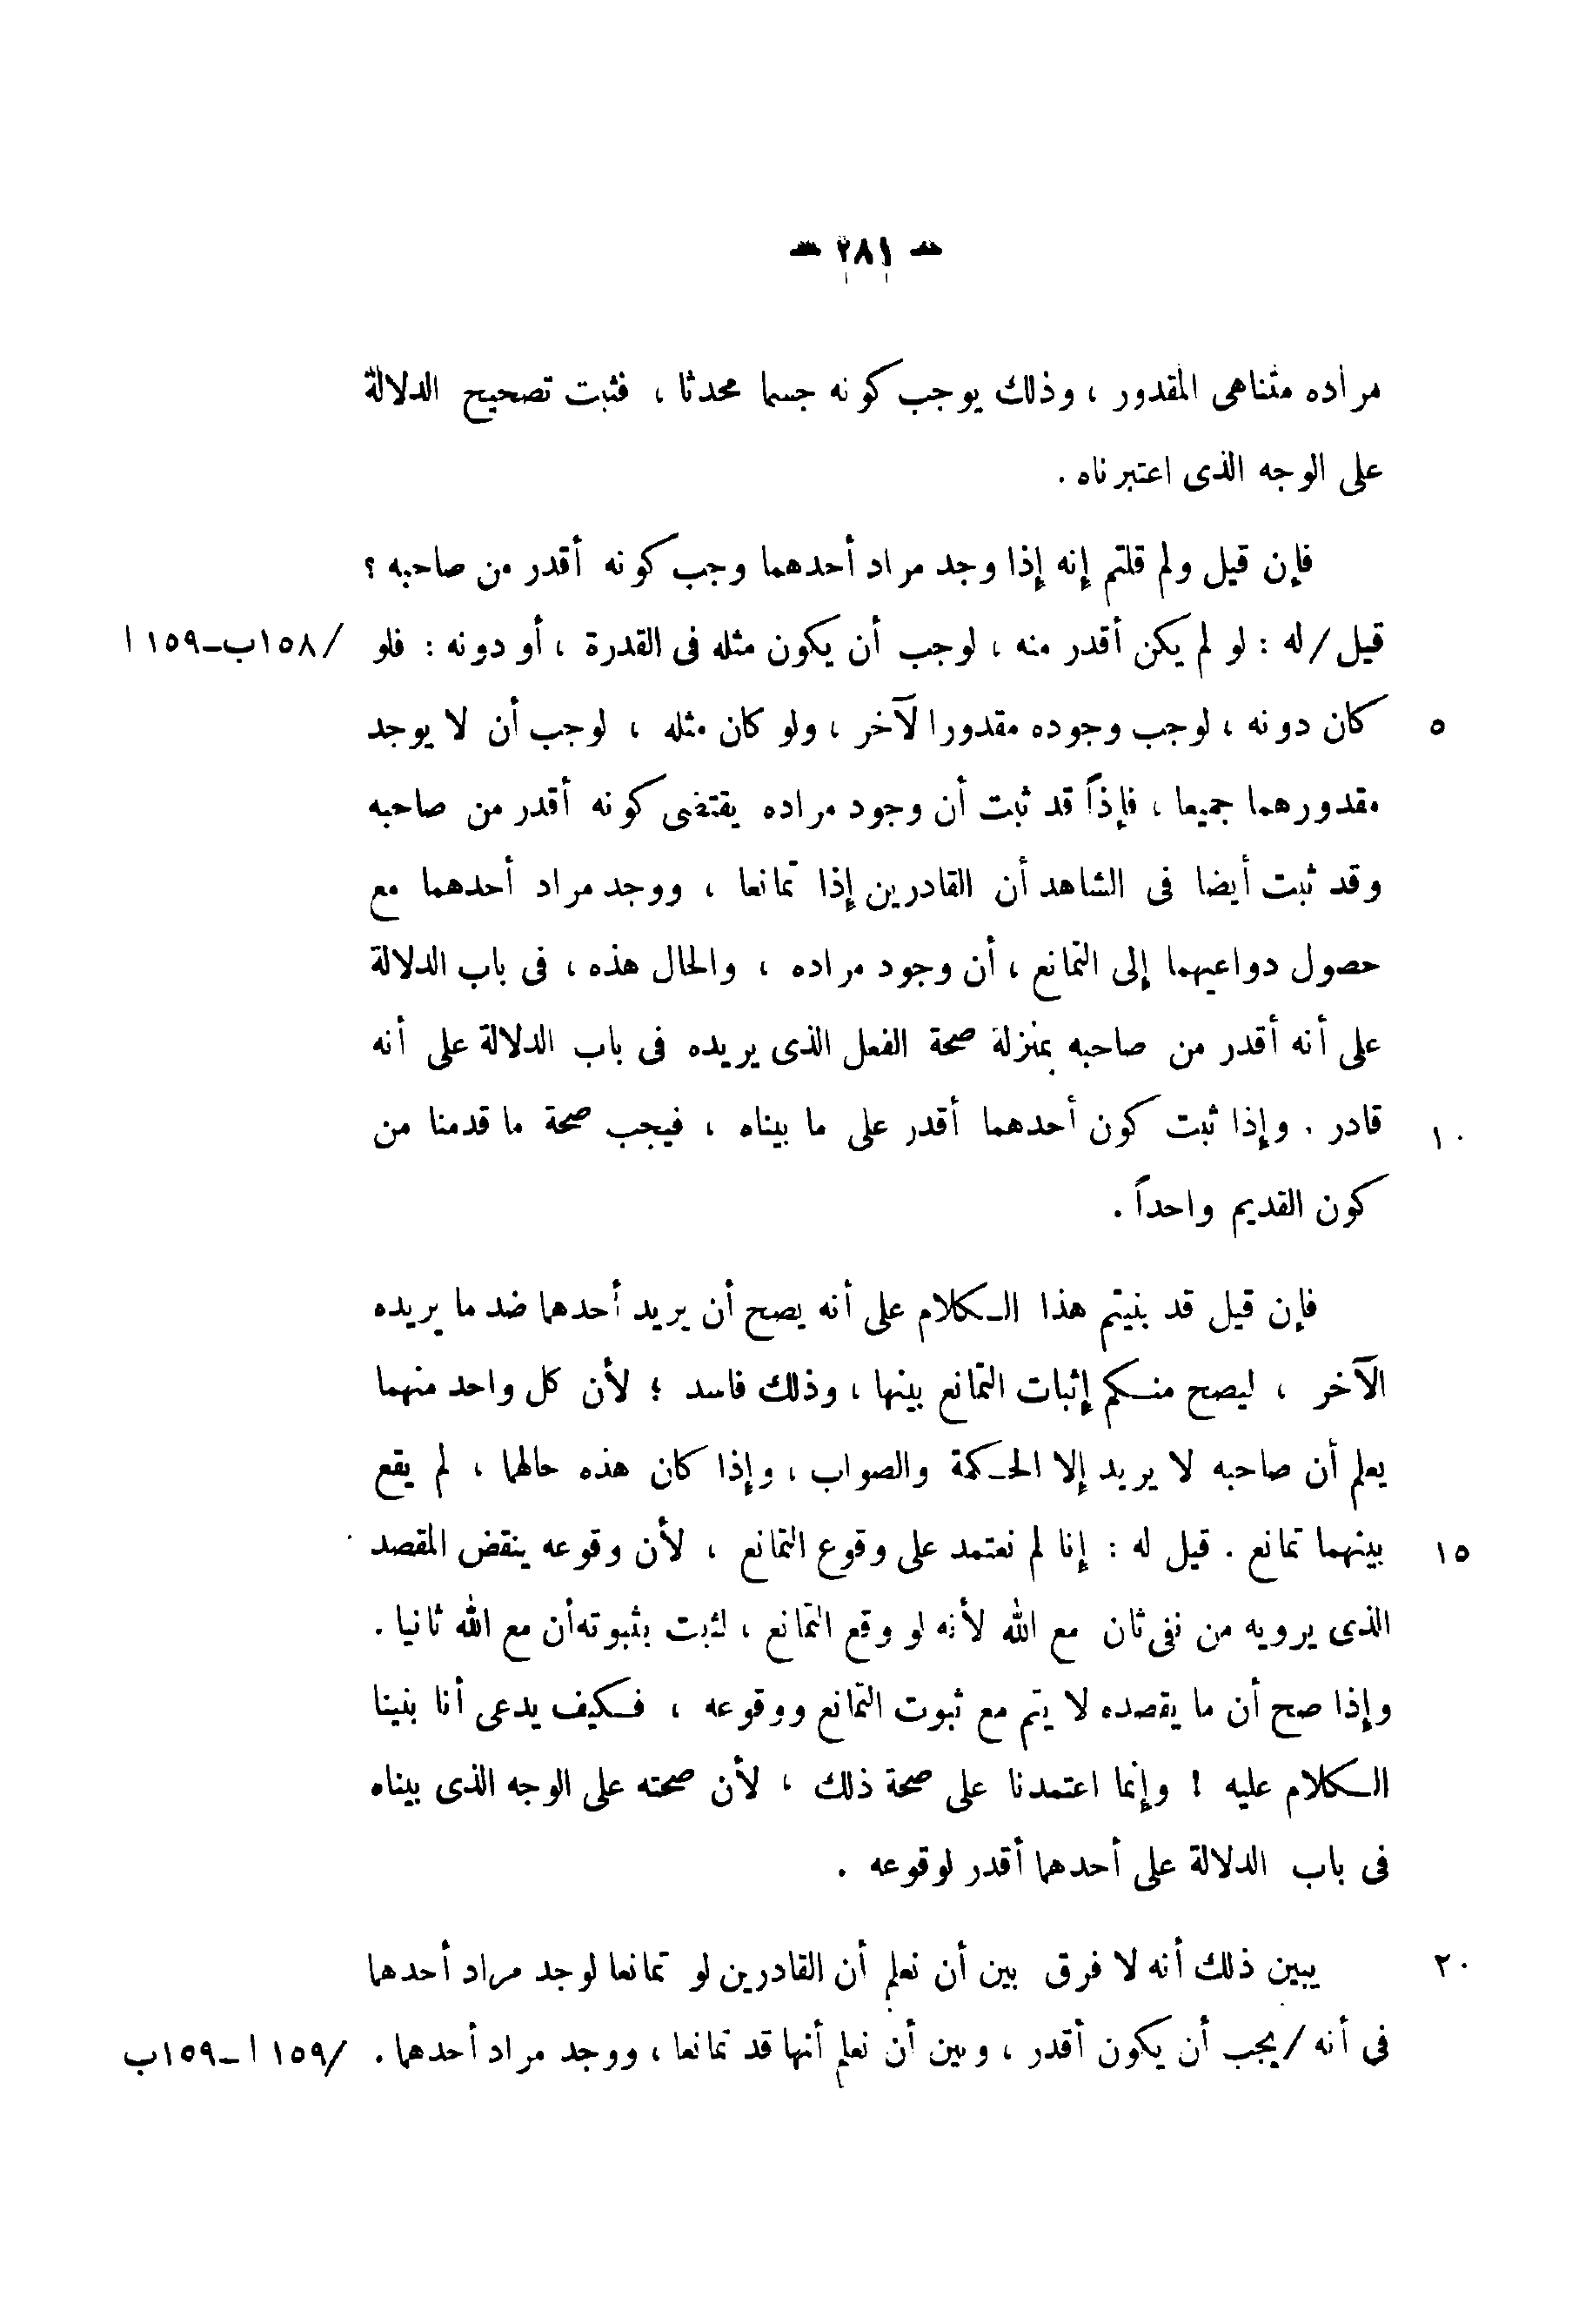 — ٢٨١ —
مراده متناهى المقدور ، وذلك يوجب كونه جسما محدثا ، فثبت تصحيح الدلالة
على الوجه الذى اعتبرناه .
فإن قيل ولم قلتم إنه إذا وجد مراد أحدهما وجب كونه أقدر من صاحبه ؟
قيل / له : لو لم يكن أقدر منه ، لوجب أن يكون مثله فى القدرة ، أو دونه : فلو /١٥٨ب-١٥٩ا
كان دونه ، لوجب وجوده مقدورا لآخر ، ولو كان مثله ، لوجب أن لا يوجد ٥
مقدورهما جميعا ، فإذاً قد ثبت أن وجود مراده يقتضى كونه أقدر من صاحبه
وقد ثبت أيضا فى الشاهد أن القادرين إذا تمانعا ، ووجد مراد أحدهما مع
حصول دواعيهما إلى التمانع ، أن وجود مراده ، والحال هذه ، فى باب الدلالة
على أنه أقدر من صاحبه بمنزلة صحة الفعل الذى يريده فى باب الدلالة على أنه
قادر . وإذا ثبت كون أحدهما أقدر على ما بيناه ، فيجب صحة ما قدمنا من ١٠
كون القديم واحداً .
فإن قيل قد بنيتم هذا الكلام على أنه يصح أن يريد أحدهما ضد ما يريده
الآخر ، ليصح منكم إثبات التمانع بينهما ، وذلك فاسد ؛ لأن كل واحد منهما
يعلم أن صاحبه لا يريد إلا الحكمة والصواب ، وإذا كان هذه حالهما ، لم يقع
بينهما تمانع . قيل له : إنا لم نعتمد على وقوع التمانع ، لأن وقوعه ينقض المقصد ١٥
الذى يرويه من نفى ثان مع الله لأنه لو وقع التمانع ، لثبت بثبوته أن مع الله ثانيا .
وإذا صح أن ما يقصده لا يتم مع ثبوت التمانع ووقوعه ، فكيف يدعى أنا بنينا
الكلام عليه ! وإنما اعتمدنا على صحة ذلك ، لأن صحته على الوجه الذى بيناه
فى باب الدلالة على أحدهما أقدر لوقوعه .
يبين ذلك أنه لا فرق بين أن نعلم أن القادرين لو تمانعا لوجد مراد أحدهما ٢٠
فى أنه / يجب أن يكون أقدر ، وبين أن نعلم أنهما قد تمانعا ، ووجد مراد أحدهما . /١٥٩ا-١٥٩ب